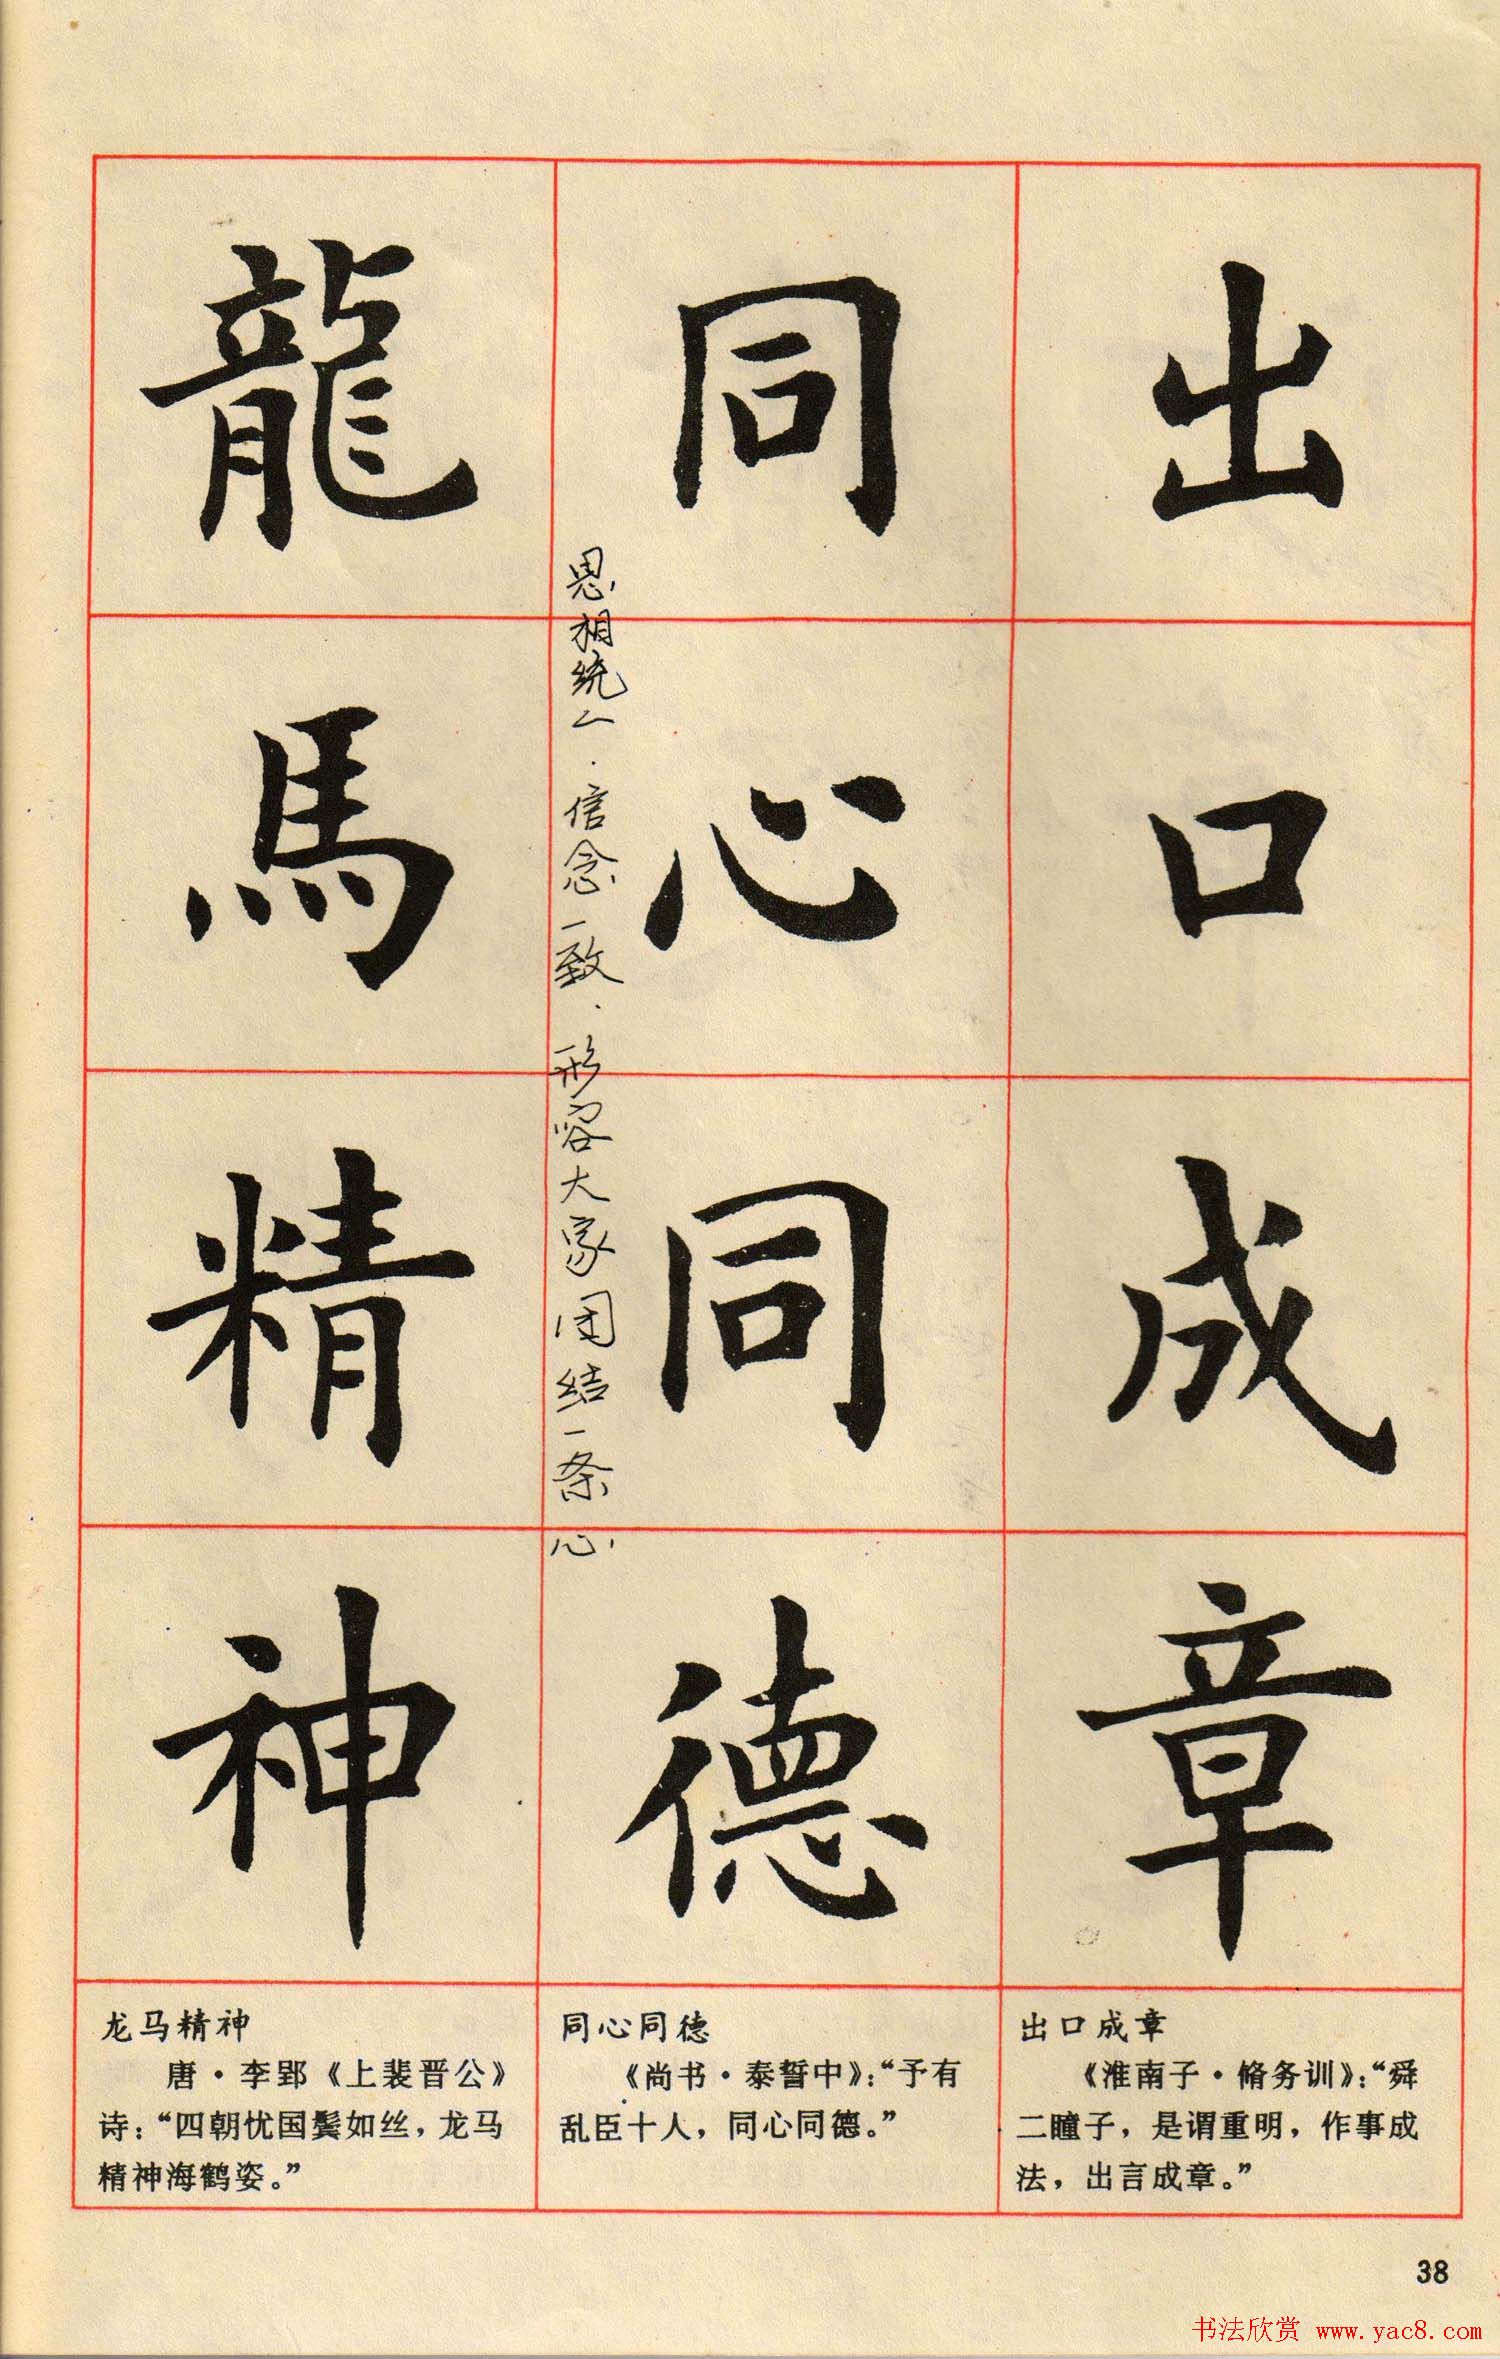 出口成章
同心同德
龍馬精神
思相统一.信念一致.形容大家团结一条心
龙马精神
唐·李郢《上裴晋公》
诗：“四朝忧国鬓如丝，龙马
精神海鹤姿。”
同心同德
《尚书·泰誓中》：“予有
乱臣十人，同心同德。”
出口成章
《淮南子·脩务训》：“舜
二瞳子，是谓重明，作事成
法，出言成章。”
38
书法欣赏 www.yac8.com